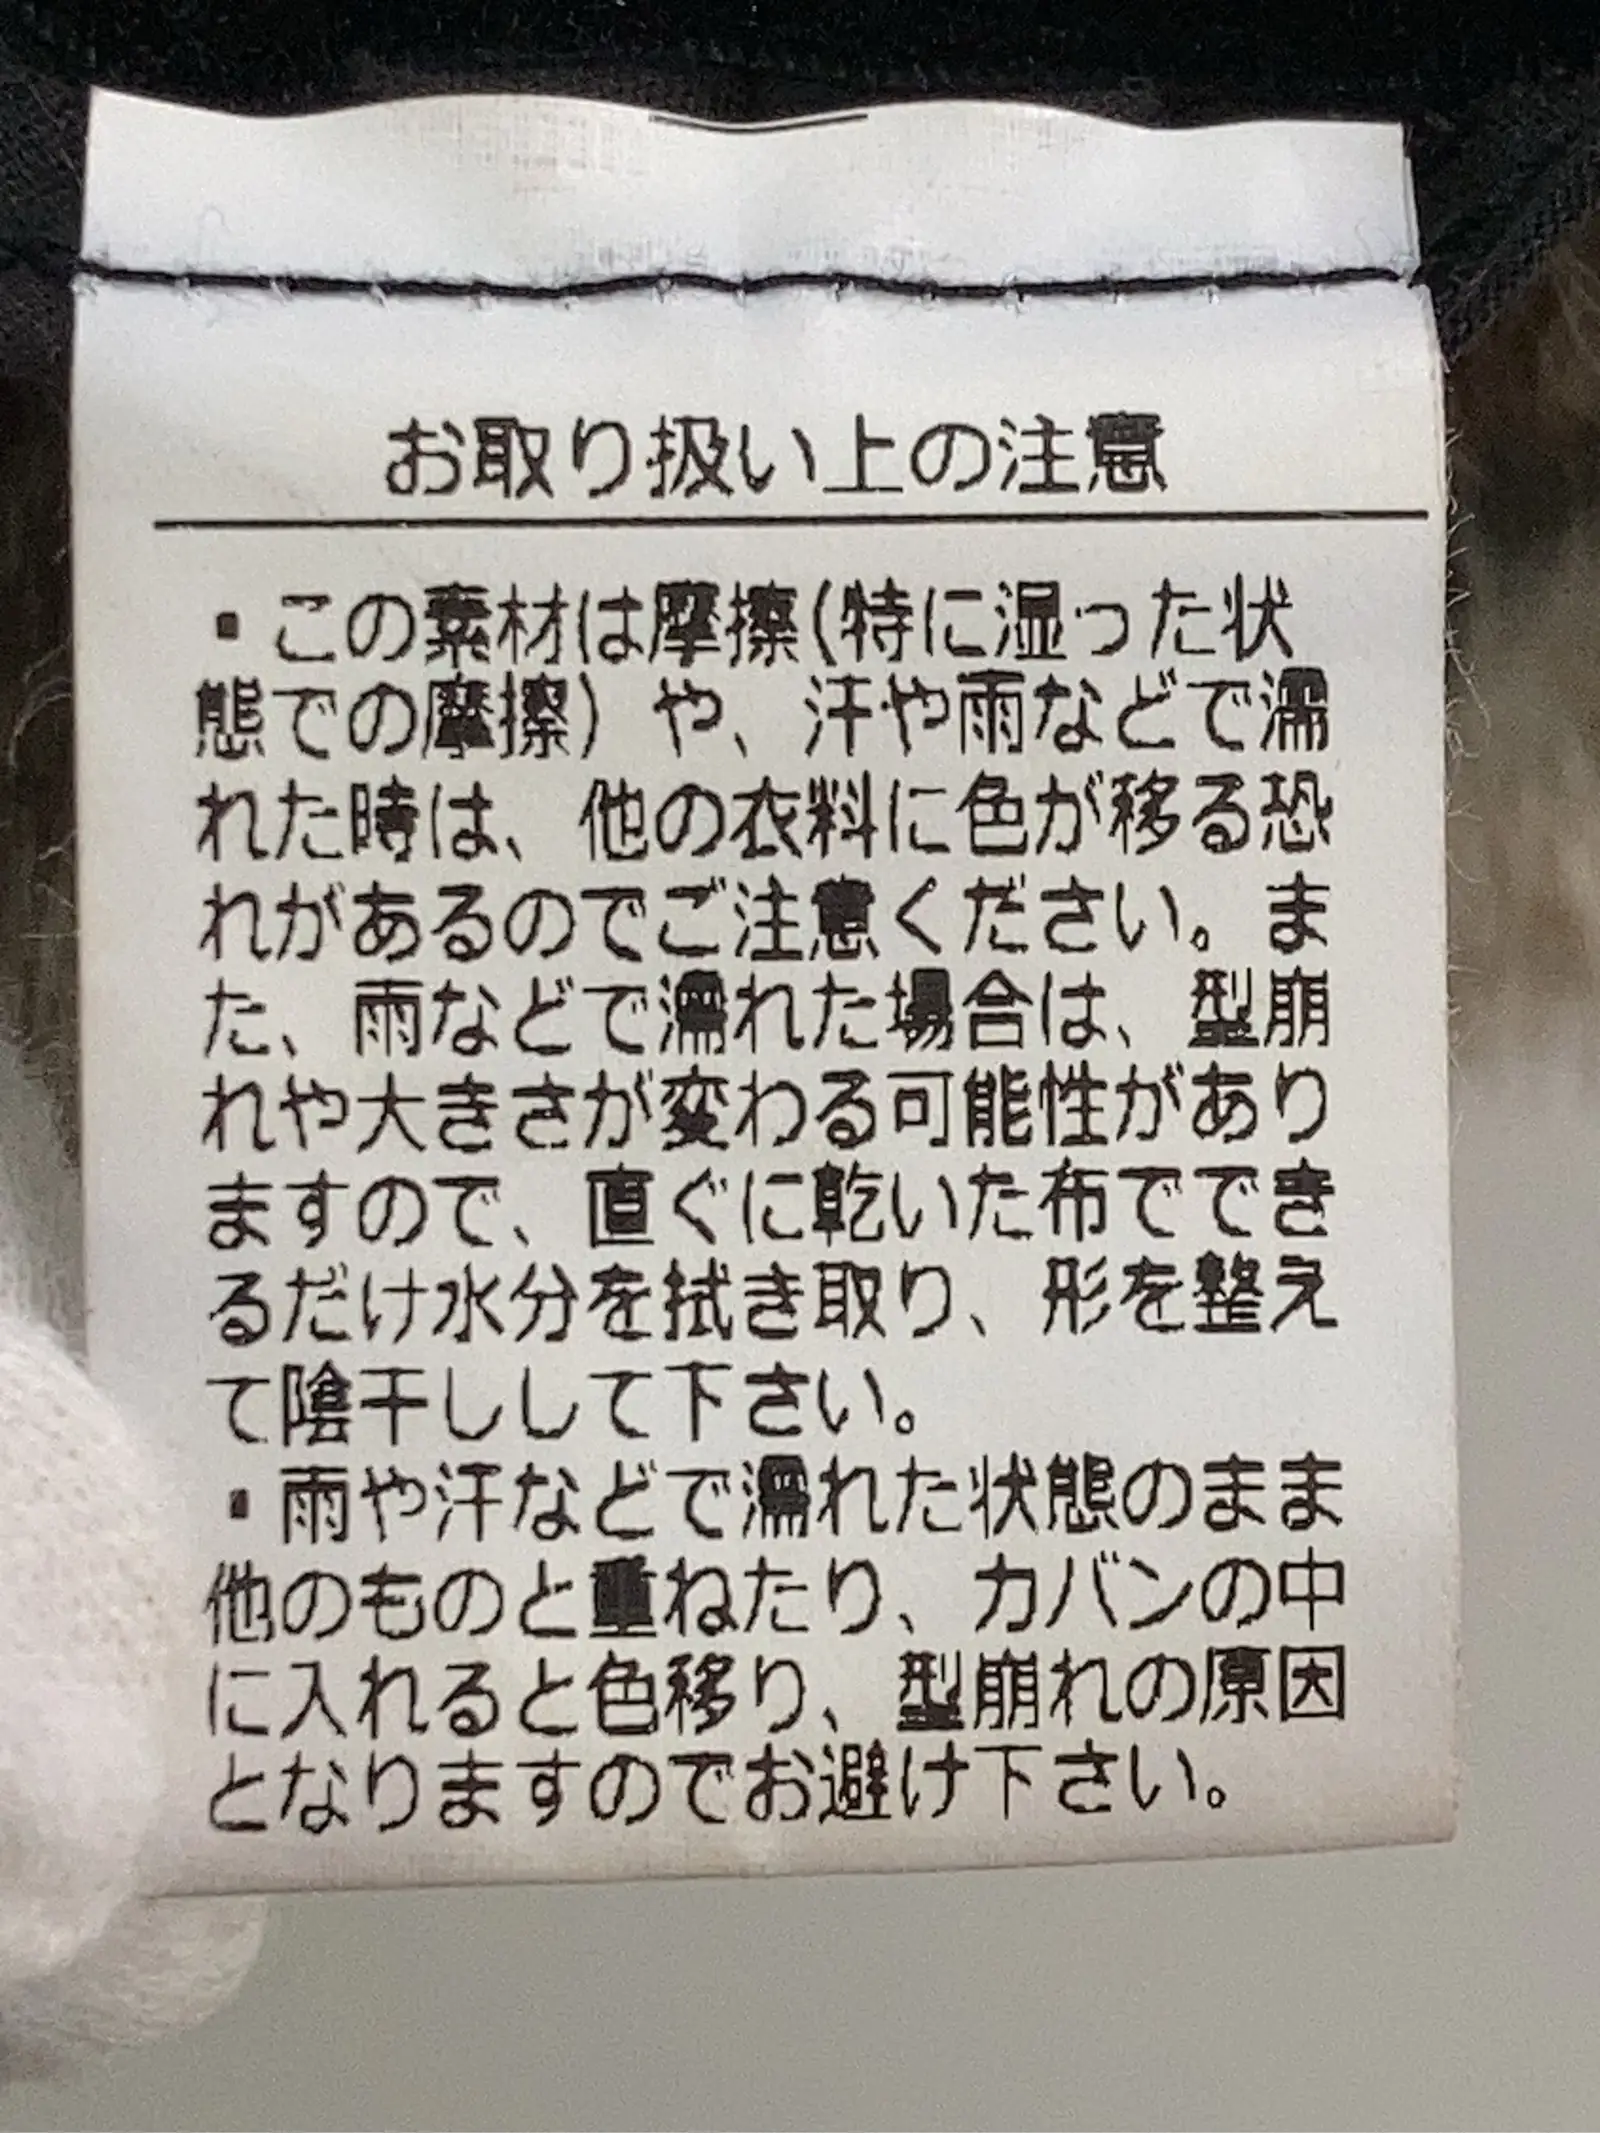 お取り扱い上の注意
▪この素材は摩擦(特に湿った状
態での摩擦)や、汗や雨などで濡
れた時は、他の衣料に色が移る恐
れがあるのでご注意ください。ま
た、雨などで濡れた場合は、型崩
れや大きさが変わる可能性があり
ますので、直ぐに乾いた布ででき
るだけ水分を拭き取り、形を整え
て陰干しして下さい。
▪雨や汗などで濡れた状態のまま
他のものと重ねたり、カバンの中
に入れると色移り、型崩れの原因
となりますのでお避け下さい。